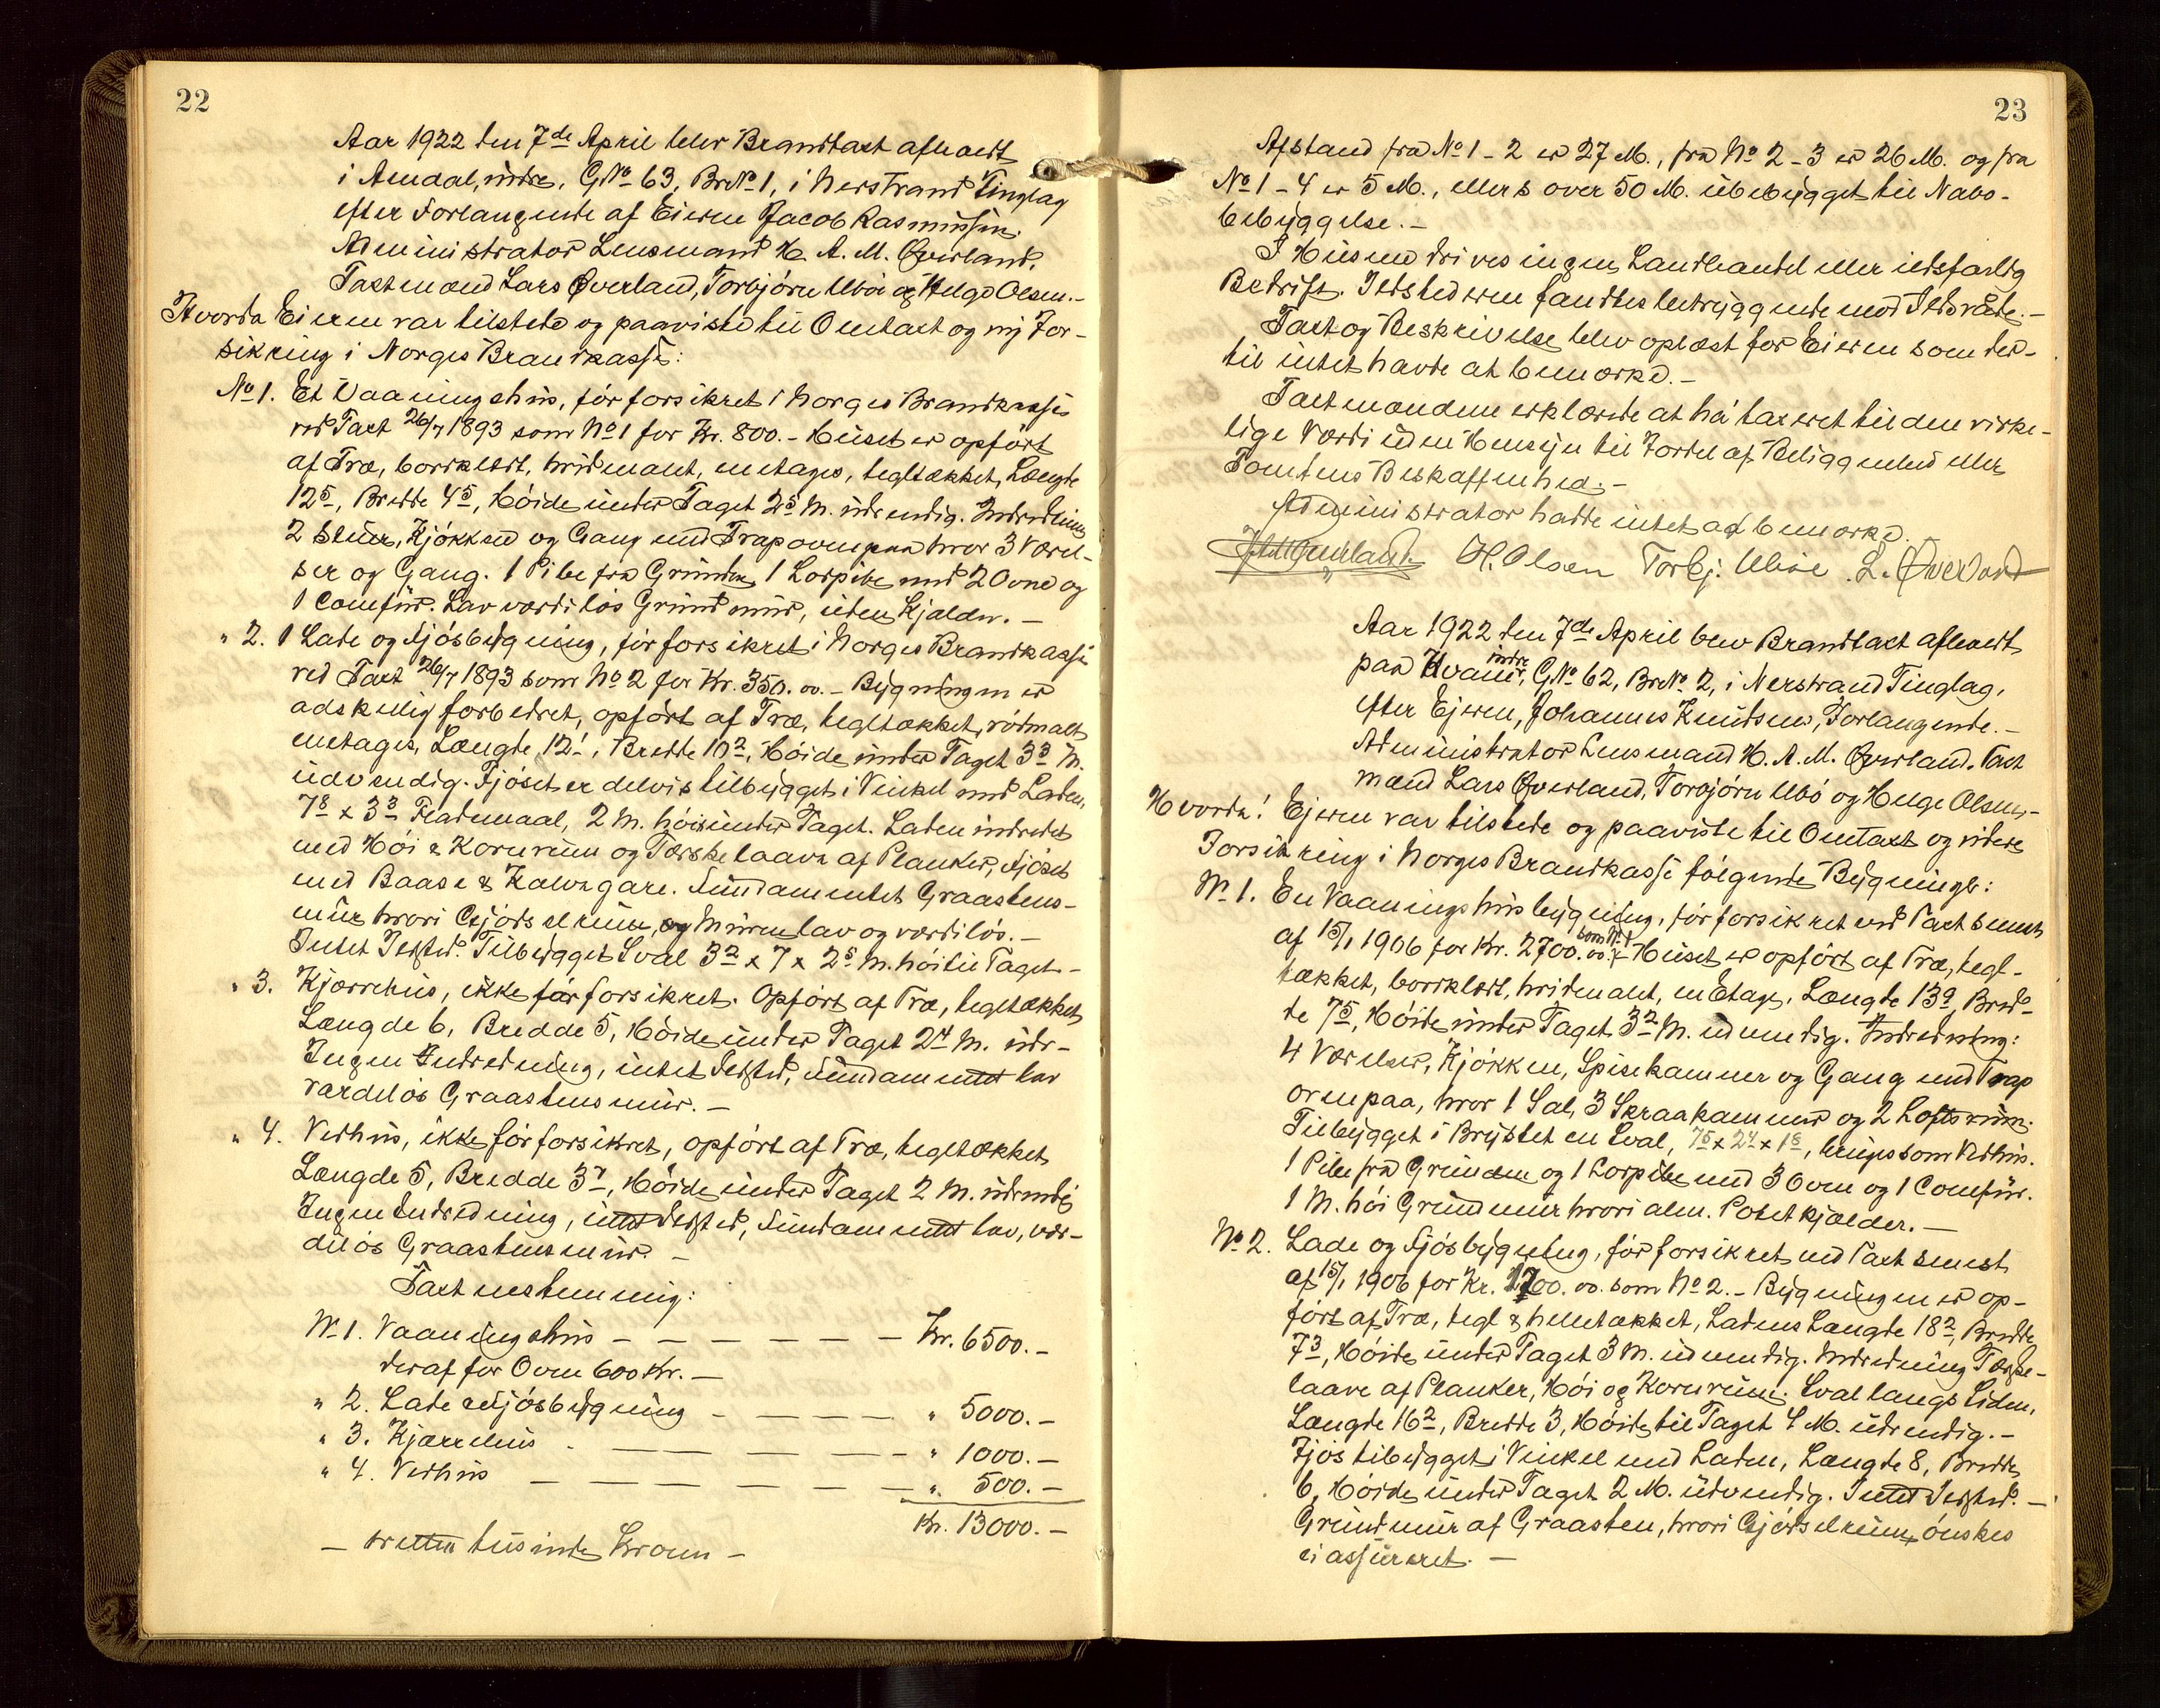 22
Aar 1922 den 7de April blev Brandtaxt afholdt
i Amdal, indre, G.No 63, Br.No 1, i Nerstrand Tinglag
efter Forlangende af Eieren Jacob Rasmussen.
Administrator Lensmand H. A. M. Øverland,
Taxtmænd Lars Øverland, Torbjørn Ubøe og Helge Olsen.-
Hvorda Eieren var tilstede og paaviste til Omtaxt og ny For-
sikring i Norges Brandkasse:
No 1. Et Vaaningshus, før forsikret i Norges Brandkasse
ved Taxt 26/7 1893 som No 1 for Kr. 800.- Huset er opført
af Træ, bordklædt, hvidmalt, enetages, tegltækket, Længde
12⁵, Bredde 4⁵, Høide under Taget 2⁵ M. udvendig. Indredning
2 Stuer, Kjøkken og Gang med Trap ovenpaa hvor 3 Værel-
ser og Gang. 1 Pibe fra Grunden, 1 Lospibe med 2 Ovne og
1 Comfur. Lav værdiløs Grundmur, uden Kjælder. -
" 2. 1 Lade og Fjøsbygning, før forsikret i Norges Brandkasse
ved Taxt 26/7 1893 som No 2 for Kr. 350.00. - Bygningen er
adskillig forbedret, opført af Træ, tegltækket, rødmalt
enetages, Længde 12¹, Bredde 10², Høide under Taget 3³ M.
udvendig. Fjøset er delvis tilbygget i Vinkel med Laden,
7⁸ x 3³ Flademaal, 2 M. høi under Taget. Laden indredet
med Høi & Kornrum og Tærskelaave af Planker, Fjøset
med Baase & Kalvegare. Fundamentet Graastens-
mur hvori Gjødselrum, og Muren lav og værdiløs. -
Intet Ildsted. Tilbygget Sval 3² x 7 x 2⁵ M. høi til Taget -
" 3. Kjærrehus, ikke før forsikret. Opført af Træ, tegltækket
Længde 6, Bredde 5, Høide under Taget 2⁴ M. udv-
Ingen Indredning, intet Ildsted, Fundamentet lav
værdiløs Graastensmur. -
" 4. Vedhus, ikke før forsikret, opført af Træ, tegltækket
Længde 5, Bredde 3⁷, Høide under Taget 2 M. udvendig
Ingen Indredning, intet Ildsted, Fundamentet lav, vær-
diløs Graastensmur. -
Taxtnestemmig:
No 1. Vaaningshus - - - - - - Kr. 6500.-
deraf for Ovne 600 Kr. -
" 2. Lade & Fjøsbygning - - - - " 5000.-
" 3. Kjærrehus - - - - - " 1000.-
" 4. Vedhus - - - - - - " 500.-
Kr. 13000.-
- tretten tusinde Kroner -
23
Afstand fra No 1 - 2 er 27 M., fra No 2 - 3 er 26 M. og fra
No 1 - 4 er 5 M., ellers over 50 M. ubebygget til Nabo-
bebyggelse. -
I Husene drives ingen Landhandel eller ildsfarlig
Bedrift. Ildstederne fandtes betryggende mod Ildsvåde. -
Taxt og Beskrivelse blev oplæst for Eieren som der-
til intet havde at bemærke. -
Taxtmændene erklærede at há taxeret til den virke-
lige Værdi uden Hensyn til Fordel af Beliggenhed eller
Tomtens Beskaffenhed. -
Administrator hadde intet at bemærke.
H. Olsen Torbj. Ubøe. L. Øverland
Aar 1922 den 7de April blev Brandtaxt afholdt
paa Hvam indre, G.No 62, Br.No 2, i Nerstrand Tinglag,
efter Ejeren, Johannes Knudsens, Forlangende. -
Administrator Lensmand H. A. M. Øverland. Taxt
mænd Lars Øverland, Torbjørn Ubø og Helge Olsen. -
Hvorda! Ejeren var tilstede og paaviste til Omtaxt og videre
Forsikring i Norges Brandkasse følgende Bygninger:
No 1. En Vaaningshusbygning, før forsikret ved Taxt senest
af 15/1 1906 for Kr. 2700.00 som No 1 - Huset er opført af Træ, tegl-
tækket, bordklædt, hvidmalt, en Etage. Længde 13⁹, Bred-
de 7⁵, Høide under Taget 3² M. udvendig. Indredning:
4 Værelser, Kjøkken, Spisekammer og Gang med Trap
ovenpaa, hvor 1 Sal, 3 Skraakammer og 2 Loftsrum.
Tilbygget i Brystet en Sval, 7⁵ x 2⁴ x 1⁸, bruges som Vedhus.
1 Pibe fra Grunden og 1 Lospibe med 3 Ovne og 1 Comfur.
1 M. høi Grundmur hvori alm. Potetkjælder. -
No 2. Lade og Fjøsbygning, før forsikret ved Taxt senest
af 15/1 1906 for Kr. 1700.00. som No 2. - Bygningen er op-
ført af Træ, tegl & helletækket, Ladens Længde 18², Bredde
7³, Høide under Taget 3 M. udvendig. Indredning Tærske-
laave af Planker, Høi og Kornrum. Sval langs Siden,
Længde 16², Bredde 3, Høide til Taget 4 M. udvendig. -
Fjøs tilbygget i Vinkel med Laden, Længde 8, Bredde
6, Høide under Taget 2 M. udvendig. Intet Ildsted. -
Grundmur af Graasten, hvori Gjødselrum, ønskes
ei assureret. -